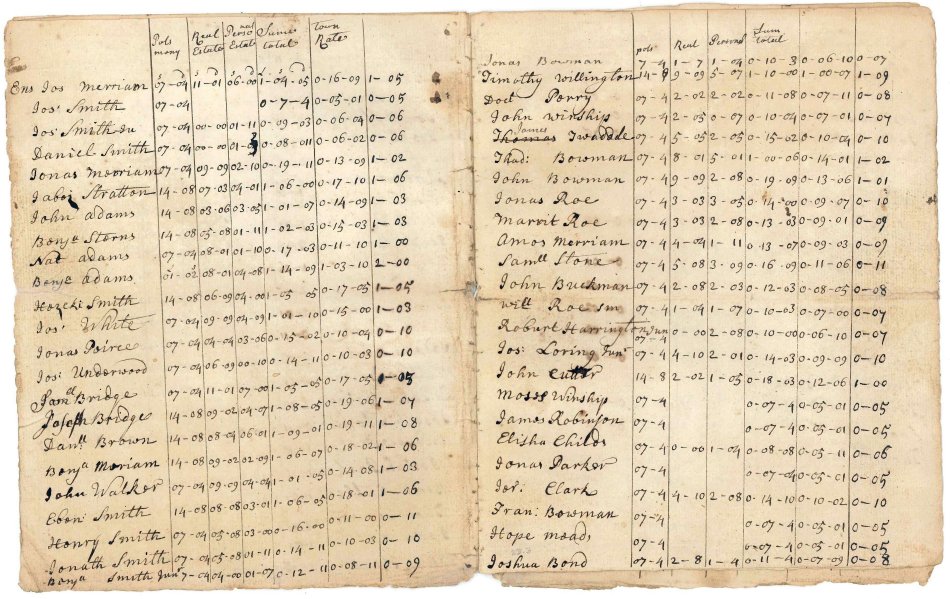 Pols mony Real Estate Perso nal Estate Sume total Town Rates
Ens Jos Merriam 07-04 11-01 06-00 1-04-05 0-16-09 1-05
Jos: Smith 07-04 0-7-4 0-05-01 0-05
Jos: Smith Ju 07-04 00-00 01-11 0-09-03 0-06-04 0-06
Daniel Smith 07-04 00-00 0-08-11 0-06-02 0-06
Jonas Merriam 07-04 09-09 02-10 0-19-11 0-13-09 1-02
Jabez Stratton 14-08 07-03 04-01 1-06-00 0-17-10 1-06
John adams 14-08 03-06 03-05 1-01-07 0-14-09 1-03
Benja Sterns 14-08 05-08 01-11 1-02-03 0-15-03 1-03
Nat adams 07-04 08-01 01-10 0-17-03 0-11-10 1-00
Benja adams 08-01 04-08 1-14-09 1-03-10 2-00
Hezeki Smith 14-08 06-09 04-00 1-05 05 0-17-05 1-05
Jos: White 07-04 09-09 04-09 1-01-10 0-15-00 1-03
Jonas Peirce 07-04 04-04 03-06 0-15-02 0-10-04 0-10
Jos: Underwood 07-04 06-09 00-10 0-14-11 0-10-03 0-10
Sam Bridge 07-04 11-01 07-00 1-05-05 0-17-05 1-05
Joseph Bridge 14-08 09-02 04-07 1-08-05 0-19-06 1-07
Danll Brown 14-08 08-04 06-01 1-09-01 0-19-11 1-08
Benja Meriam 14-08 09-02 02-09 1-06-07 0-18-02 1-06
John Walker 07-04 09-09 04-04 1-01-05 0-14-08 1-03
Eben: Smith 14-08 08-08 03-01 1-06-05 0-18-01 1-06
Henry Smith 07-04 05-08 03-00 0-16-00 0-11-00 0-11
Jonath Smith 07-04 05-08 01-11 0-14-11 0-10-03 0-10
Benja Smith Jun 7-04 04-00 01-07 0-12-11 0-08-10 0-09
pols Real Persnal Sum total
Jonas Bowman 7-4 1-7 1-04 0-10-3 0-06-10 0-07
Timothy Willington 14-8 9-09 5-07 1-10-00 1-00-07 1-09
Doct Perry 07-4 2-02 2-02 0-11-08 0-07-11 0-08
John Winship 07-4 2-05 0-07 0-10-04 0-07-01 0-07
James
Thomas Twaddle 07-4 5-05 2-05 0-15-02 0-10-04 0-10
Thad: Bowman 07-4 8-01 5-01 1-00-06 0-14-01 1-02
John Bowman 07-4 9-09 2-08 0-19-09 0-13-06 1-01
Jonas Roe 07-4 3-03 3-05 0-14-00 0-09-07 0-10
Marrit Roe 07-4 3-03 2-08 0-13-03 0-09-01 0-09
Amos Merriam 07-4 4-04 1-11 0-13-07 0-09-03 0-09
Samll Stone 07-4 5-08 3-09 0-16-09 0-11-06 0-11
John Buckman 07-4 2-08 2-03 0-12-03 0-08-05 0-08
Will Roe 07-4 1-04 1-07 0-10-03 0-07-00 0-07
Roburt Harrington Jun 07-4 0-00 2-08 0-10-00 0-06-10 0-07
Jos: Loring Junr 07-4 4-10 2-01 0-14-03 0-09-09 0-10
John Cutter 14-8 2-02 1-05 0-18-03 0-12-06 1-00
Moses Winship 07-4 0-07-4 0-05-01 0-05
James Robinson 07-4 0-07-4 0-05-01 0-05
Elisha Childs 07-4 0-00 1-04 0-08-08 0-05-11 0-06
Jonas Parker 07-4 0-07-04 0-05-01 0-05
Jer: Clark 07-4 4-10 2-08 0-14-10 0-10-02 0-10
Fran: Bowman 07-4 0-07-4 0-05-01 0-05
Hope meads 07-4 0-07-4 0-05-01 0-05
Joshua Bond 07-4 2-8 1-4 0-11-4 0-07-09 0-08